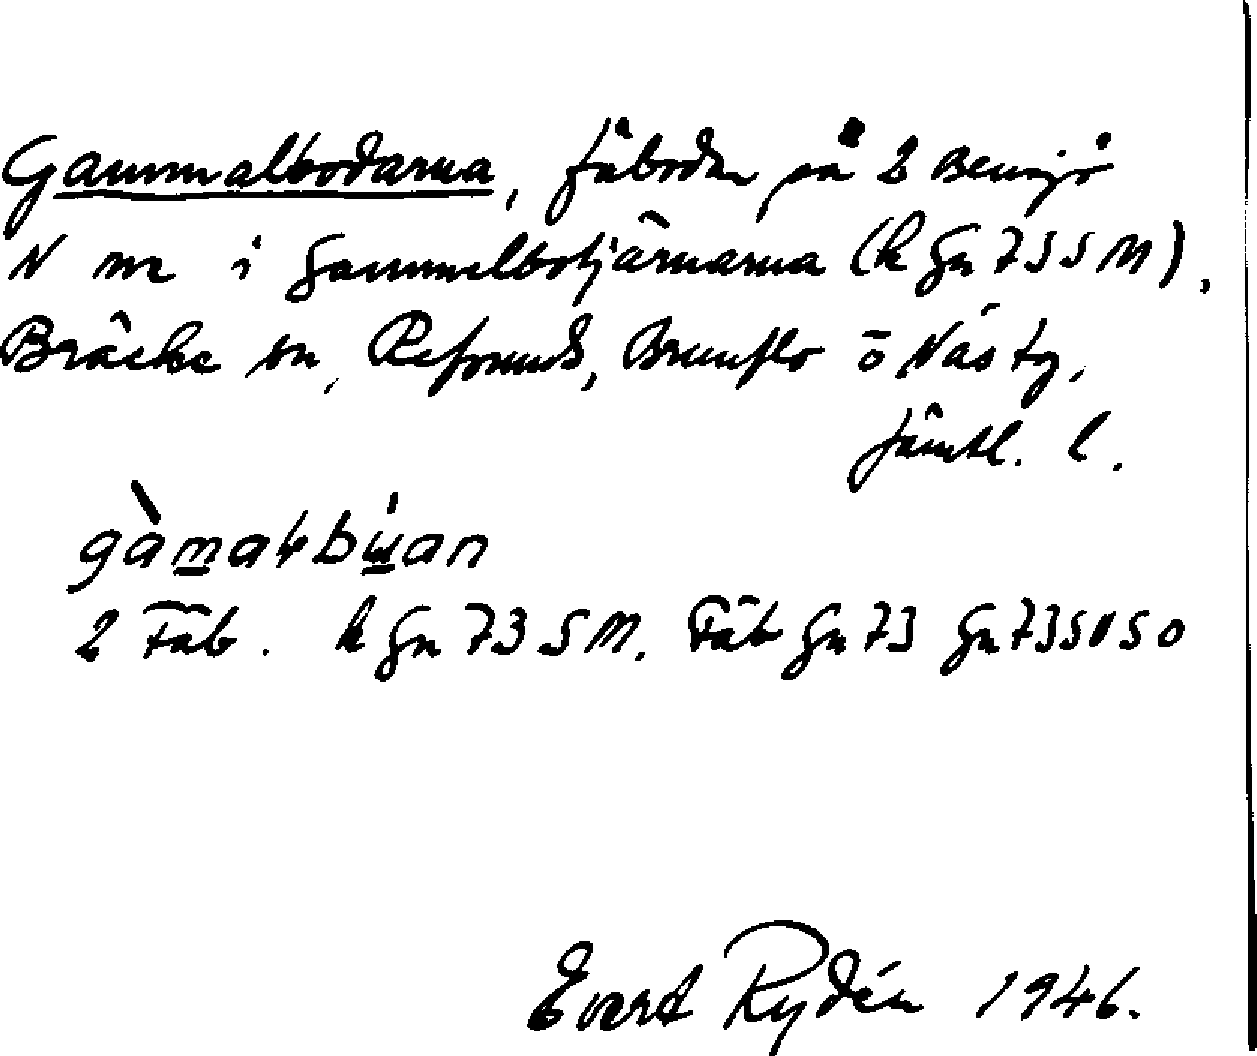 Gammalbodarna, fäbodar på 2 Bensjö
N m i Gammelbotjärnarna (k Gn 735 M),
Bräcke sn, Refsunds, Brunflo o Näs tg,
Jämtl. l.
gàmaɫbúan
2 Fäb. k Gn 73 5 M. Fäb Gn 73 Gn 735050
Evert Rydén 1946.